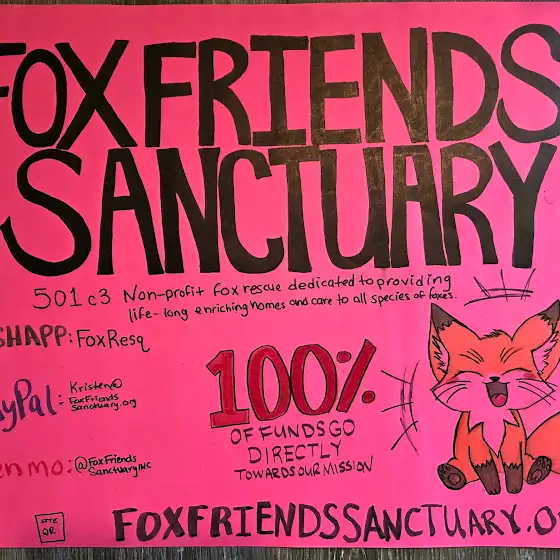 FOX FRIENDS
SANCTUARY
501c3 Non-profit fox rescue dedicated to providing
life-long enriching homes and care to all species of foxes.
SHAPP: FoxResq
yPal: Kristen@
FoxFriends
Sanctuary.org
enmo: @FoxFriends
SanctuaryINC
100%
OF FUNDS GO
DIRECTLY
TOWARDS OUR MISSION
SITE
QR
FOXFRIENDSSANCTUARY.O